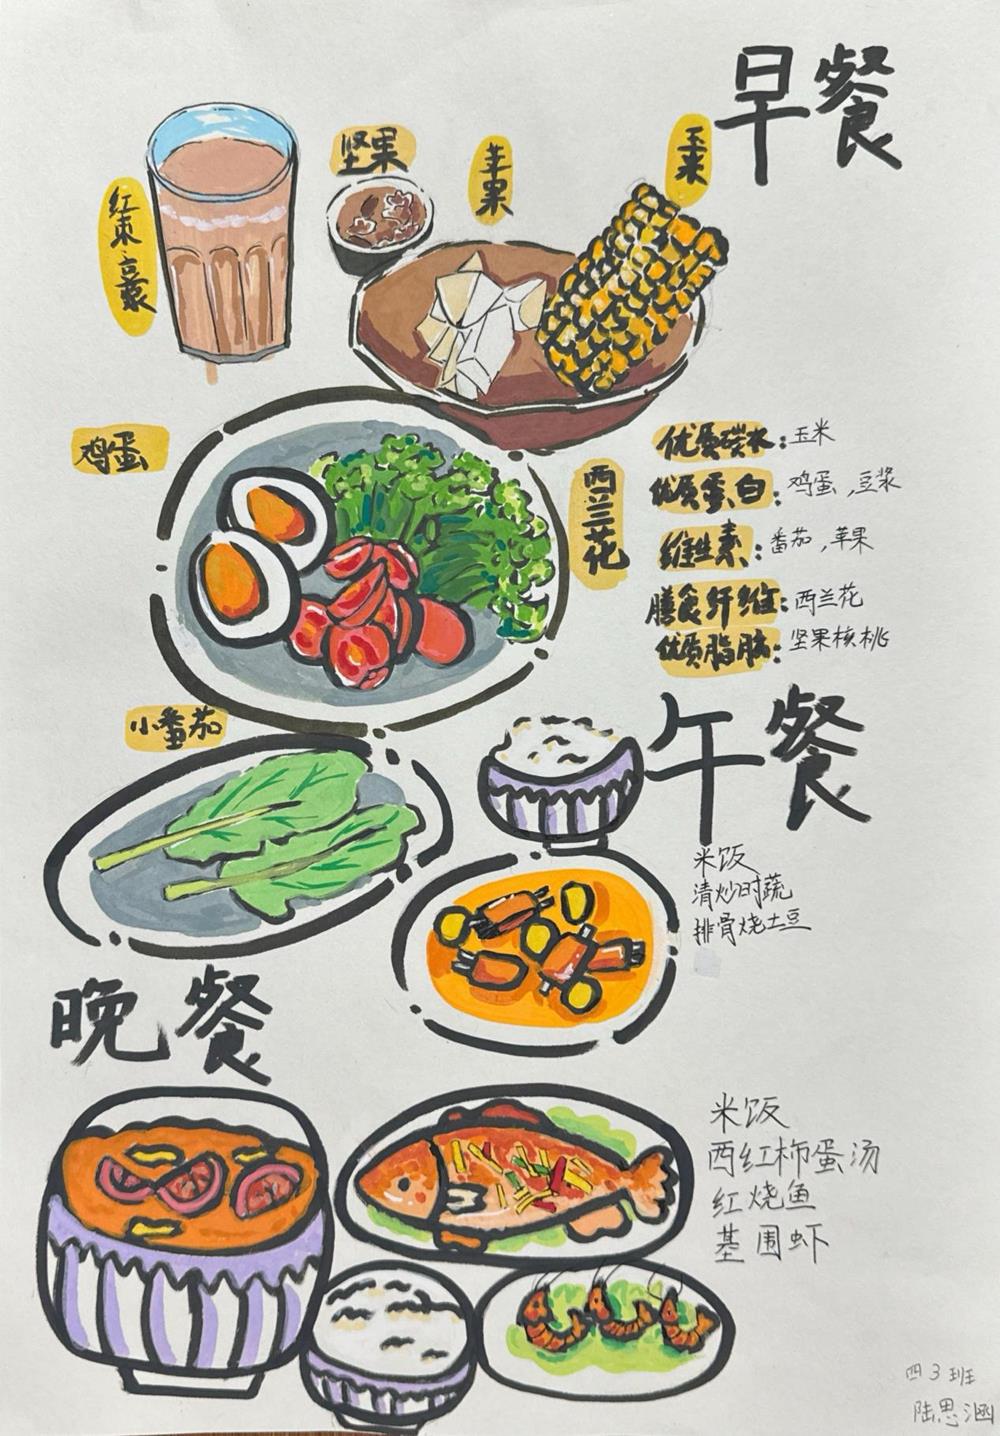 早餐
坚果
苹果
玉米
红枣豆浆
鸡蛋
西兰花
小番茄
优质碳水：玉米
优质蛋白：鸡蛋，豆浆
维生素：番茄，苹果
膳食纤维：西兰花
优质脂肪：坚果核桃
午餐
米饭
清炒时蔬
排骨烧土豆
晚餐
米饭
西红柿蛋汤
红烧鱼
基围虾
四3班
陆思涵